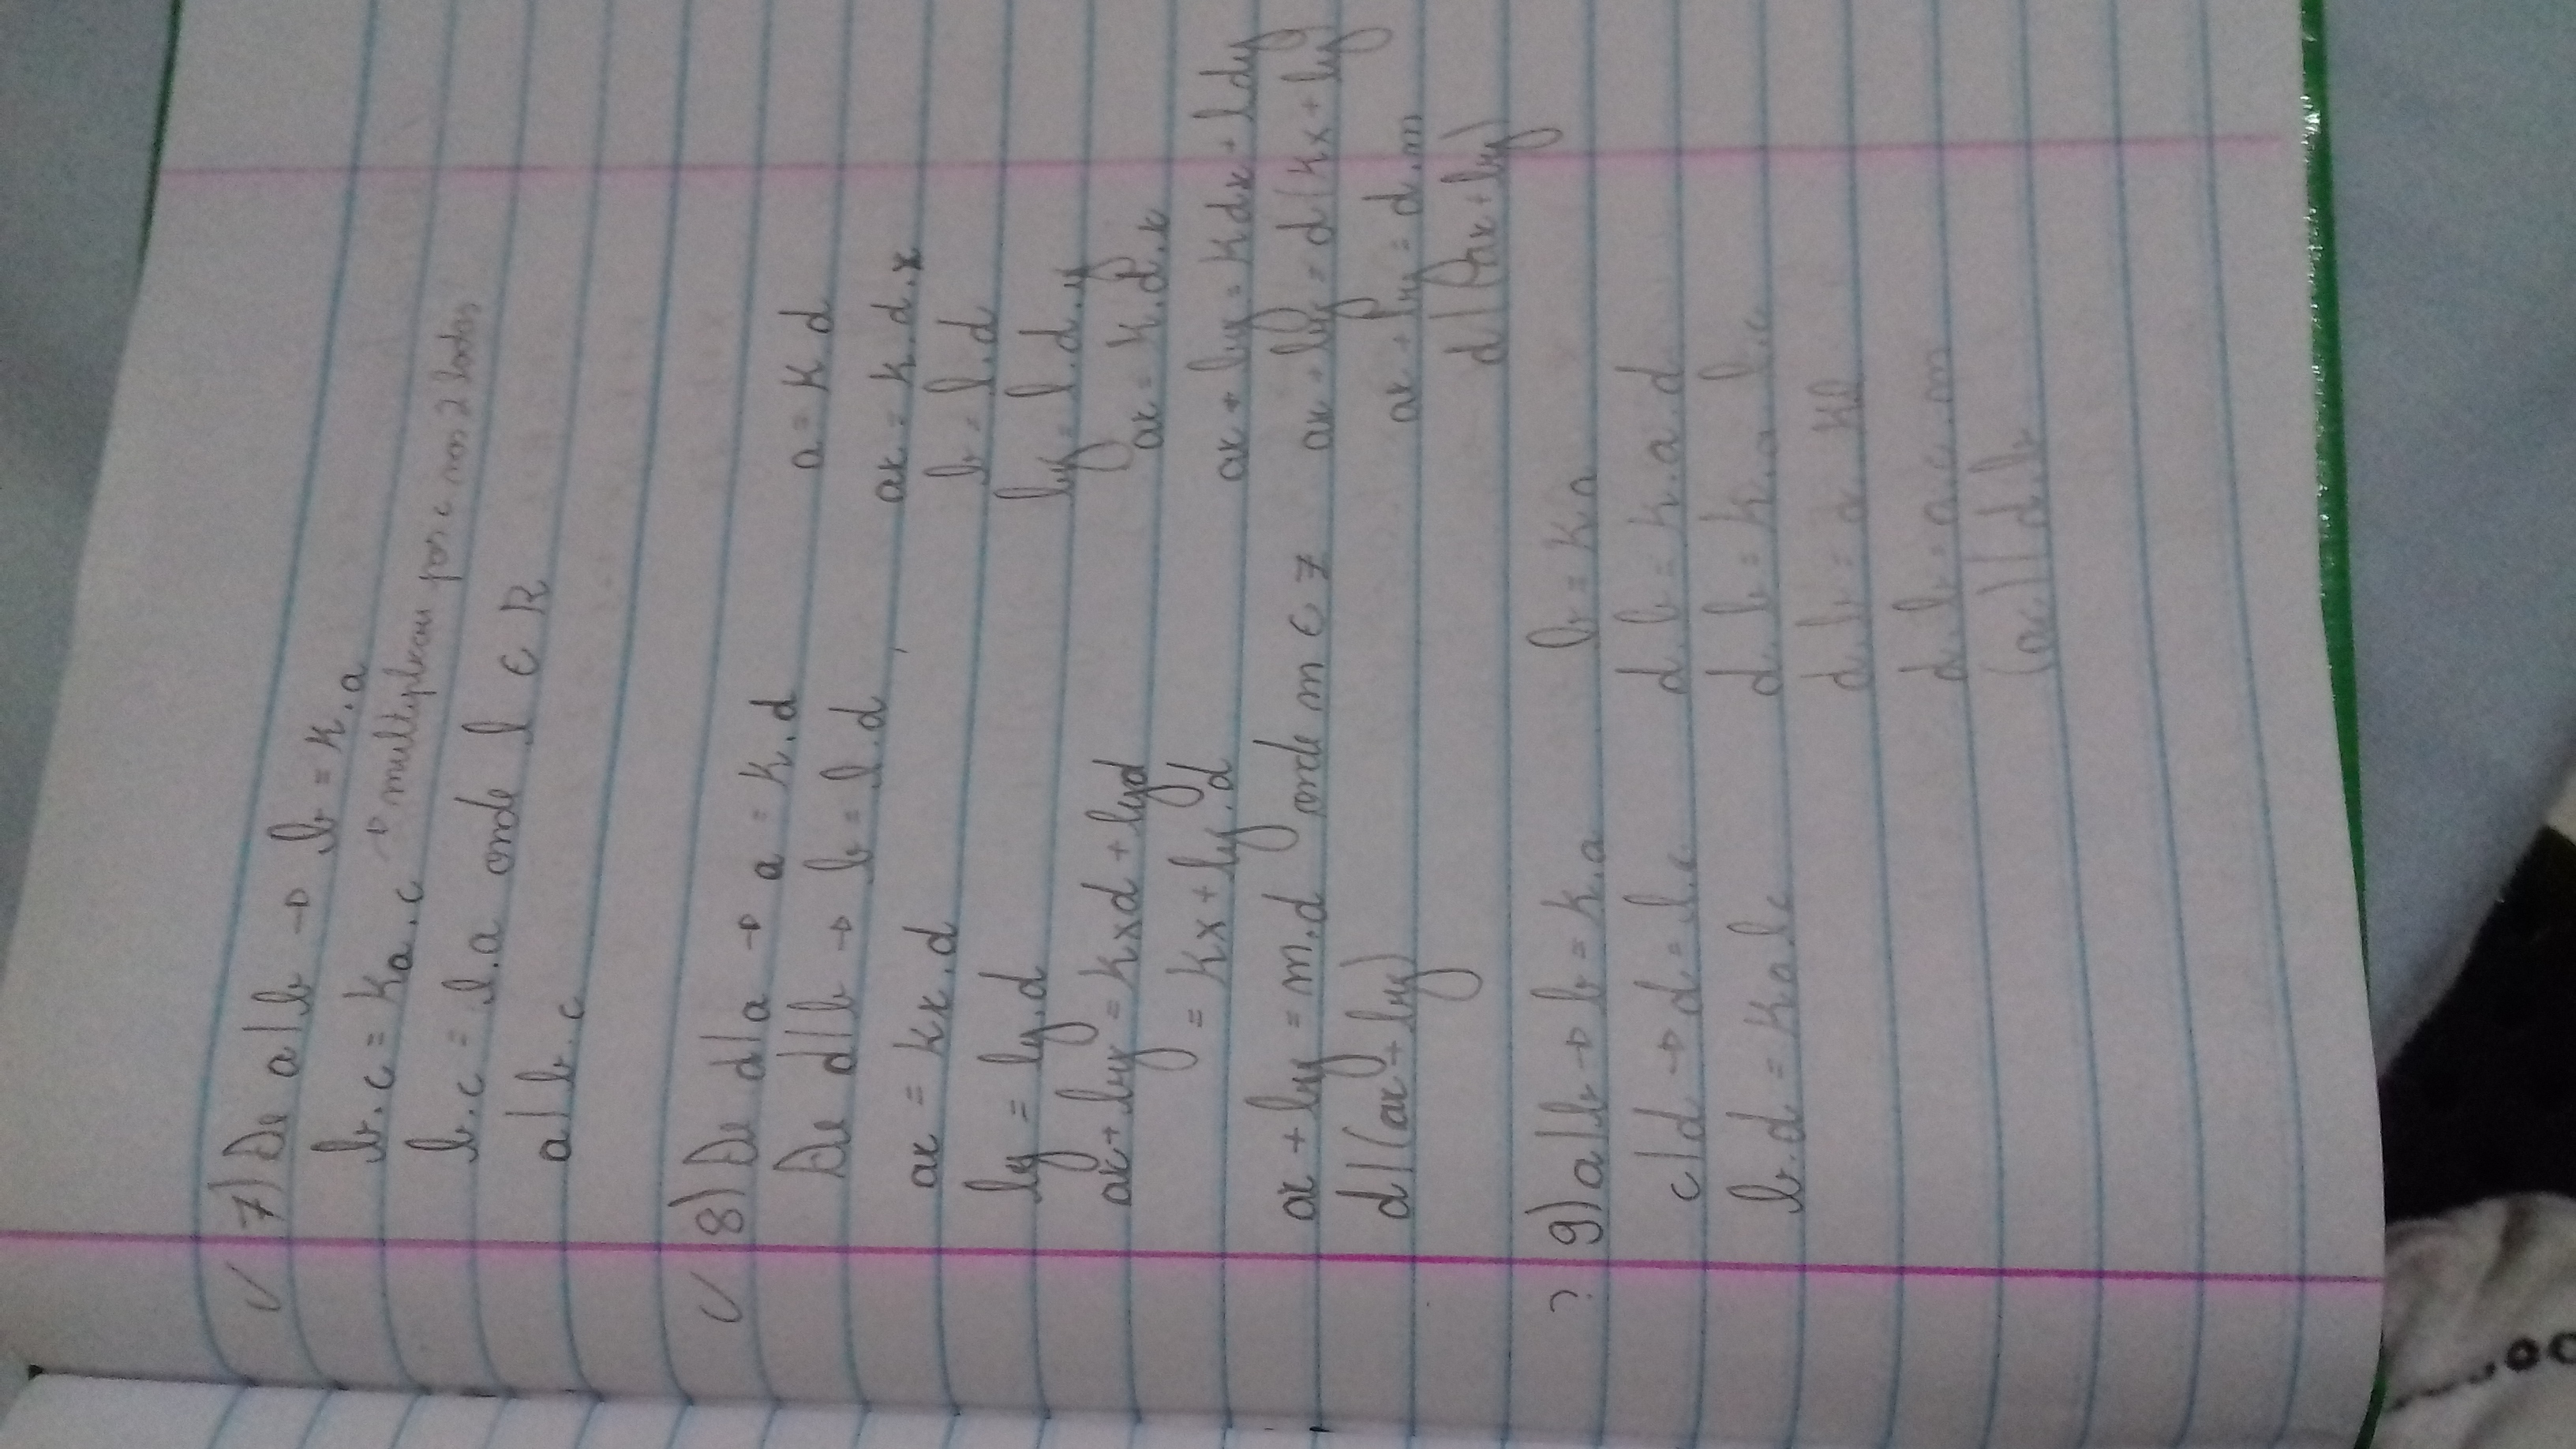 ✓ 7) De a|b → b = k.a
b.c = ka.c → multiplicou por c nos 2 lados
b.c = l.a onde l ∈ R
a|b.c
✓ 8) De d|a → a = k.d
De d|b → b = l.d,
ax = kx.d
by = ly.d
ax + by = kxd + lyd
= kx + ly.d
ax + by = m.d onde m ∈ Z
d|(ax + by)
a = k d
ax = k.d.x
b = l.d
by = l.d.y
ax = k.d.x
ax + by = kdx + ldy
ax + by = d(kx + ly)
ax + by = d.m
d|(ax + by)
? 9) a|b → b = k.a
c|d → d = l.c
b.d = k a l c
b = k a
d.b = k.a.d
d.b = k.a l.c
d.b = kl
d.b = a.c.m
(ac)|d.b